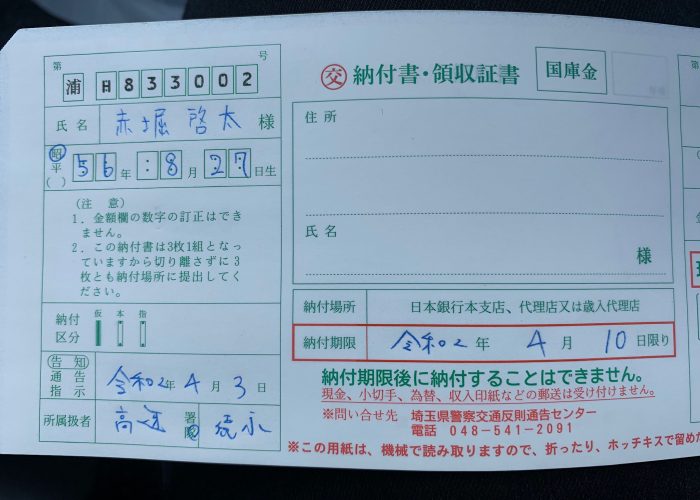 第 号
浦 日833002
氏名 赤堀 啓太 様
昭
平
( ) 56年 :8月 27日生
(注 意)
1. 金額欄の数字の訂正はでき
ません。
2. この納付書は3枚1組となっ
ていますから切り離さずに3
枚とも納付場所に提出してく
ださい。
納付
区分 仮 本 指
告知
通告
指示 令和02年4月3日
所属扱者 高速 署
隊
交 納付書・領収証書 国庫金
住所
氏名
様
納付場所 日本銀行本支店、代理店又は歳入代理店
納付期限 令和02年 4月 10日限り
納付期限後に納付することはできません。
現金、小切手、為替、収入印紙などの郵送は受け付けません。
※問い合せ先 埼玉県警察交通反則通告センター
電話 048-541-2091
※この用紙は、機械で読み取りますので、折ったり、ホッチキスで留めた